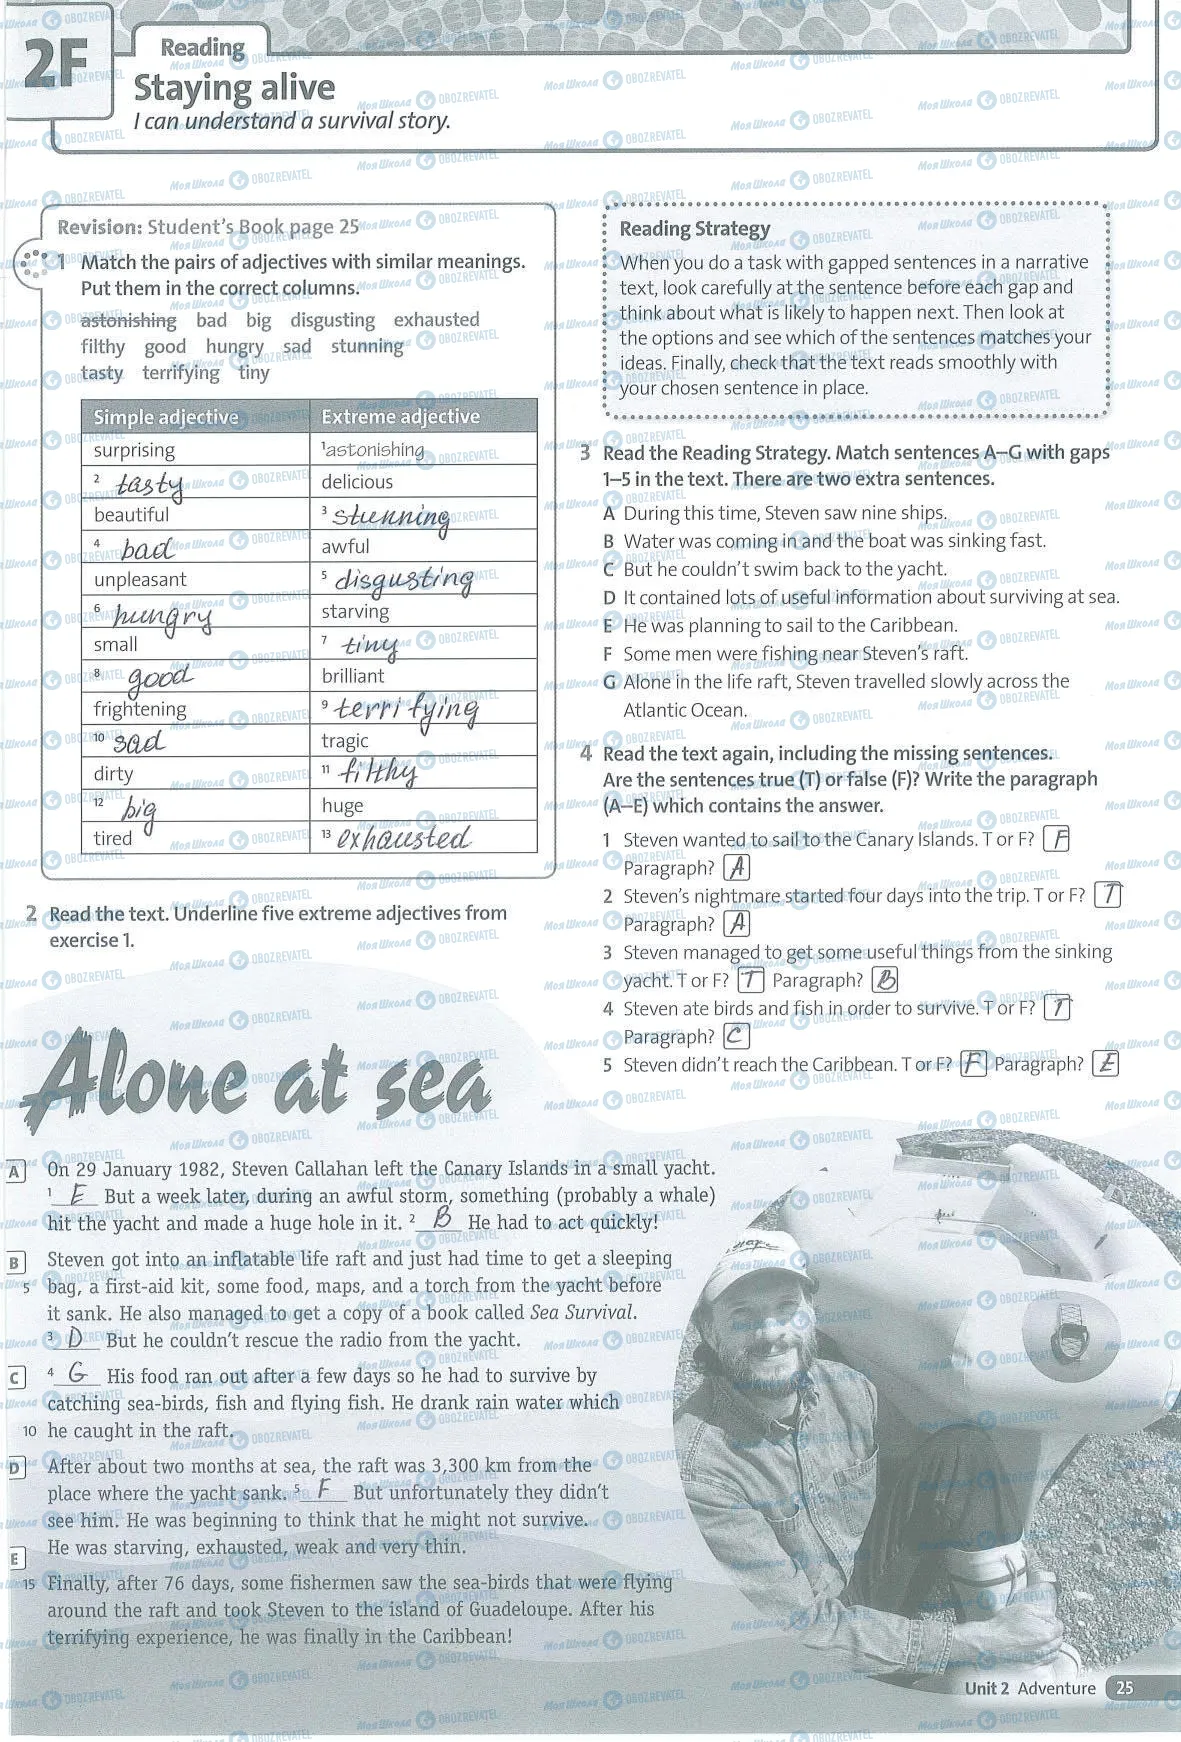 2F
Reading
Staying alive
I can understand a survival story.
Revision: Student's Book page 25
1 Match the pairs of adjectives with similar meanings.
Put them in the correct columns.
astonishing bad big disgusting exhausted
filthy good hungry sad stunning
tasty terrifying tiny
Simple adjective Extreme adjective
surprising 1 astonishing
2 tasty delicious
beautiful 3 stunning
4 bad awful
unpleasant 5 disgusting
6 hungry starving
small 7 tiny
8 good brilliant
frightening 9 terrifying
10 sad tragic
dirty 11 filthy
12 big huge
tired 13 exhausted
2 Read the text. Underline five extreme adjectives from
exercise 1.
Reading Strategy
When you do a task with gapped sentences in a narrative
text, look carefully at the sentence before each gap and
think about what is likely to happen next. Then look at
the options and see which of the sentences matches your
ideas. Finally, check that the text reads smoothly with
your chosen sentence in place.
3 Read the Reading Strategy. Match sentences A–G with gaps
1–5 in the text. There are two extra sentences.
A During this time, Steven saw nine ships.
B Water was coming in and the boat was sinking fast.
C But he couldn't swim back to the yacht.
D It contained lots of useful information about surviving at sea.
E He was planning to sail to the Caribbean.
F Some men were fishing near Steven's raft.
G Alone in the life raft, Steven travelled slowly across the
Atlantic Ocean.
4 Read the text again, including the missing sentences.
Are the sentences true (T) or false (F)? Write the paragraph
(A–E) which contains the answer.
1 Steven wanted to sail to the Canary Islands. T or F? F
Paragraph? A
2 Steven's nightmare started four days into the trip. T or F? T
Paragraph? A
3 Steven managed to get some useful things from the sinking
yacht. T or F? T Paragraph? B
4 Steven ate birds and fish in order to survive. T or F? T
Paragraph? C
5 Steven didn't reach the Caribbean. T or F? F Paragraph? E
Alone at sea
A On 29 January 1982, Steven Callahan left the Canary Islands in a small yacht.
1 E But a week later, during an awful storm, something (probably a whale)
hit the yacht and made a huge hole in it. 2 B He had to act quickly!
B Steven got into an inflatable life raft and just had time to get a sleeping
5 bag, a first-aid kit, some food, maps, and a torch from the yacht before
it sank. He also managed to get a copy of a book called Sea Survival.
3 D But he couldn't rescue the radio from the yacht.
C 4 G His food ran out after a few days so he had to survive by
catching sea-birds, fish and flying fish. He drank rain water which
10 he caught in the raft.
D After about two months at sea, the raft was 3,300 km from the
place where the yacht sank. 5 F But unfortunately they didn't
see him. He was beginning to think that he might not survive.
He was starving, exhausted, weak and very thin.
E
15 Finally, after 76 days, some fishermen saw the sea-birds that were flying
around the raft and took Steven to the island of Guadeloupe. After his
terrifying experience, he was finally in the Caribbean!
Unit 2 Adventure 25
Моя Школа OBOZREVATEL